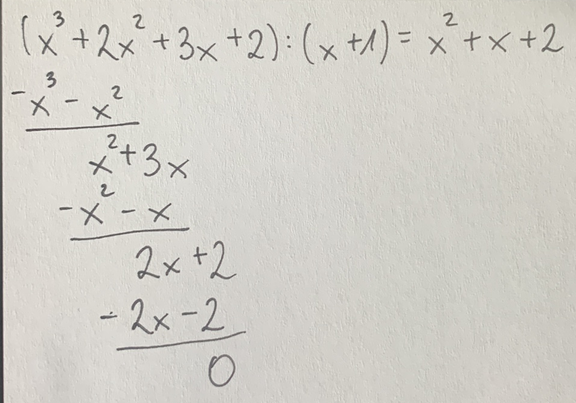 (x³ + 2x² + 3x + 2) : (x + 1) = x² + x + 2
-x³ - x²
x² + 3x
-x² - x
2x + 2
-2x - 2
0